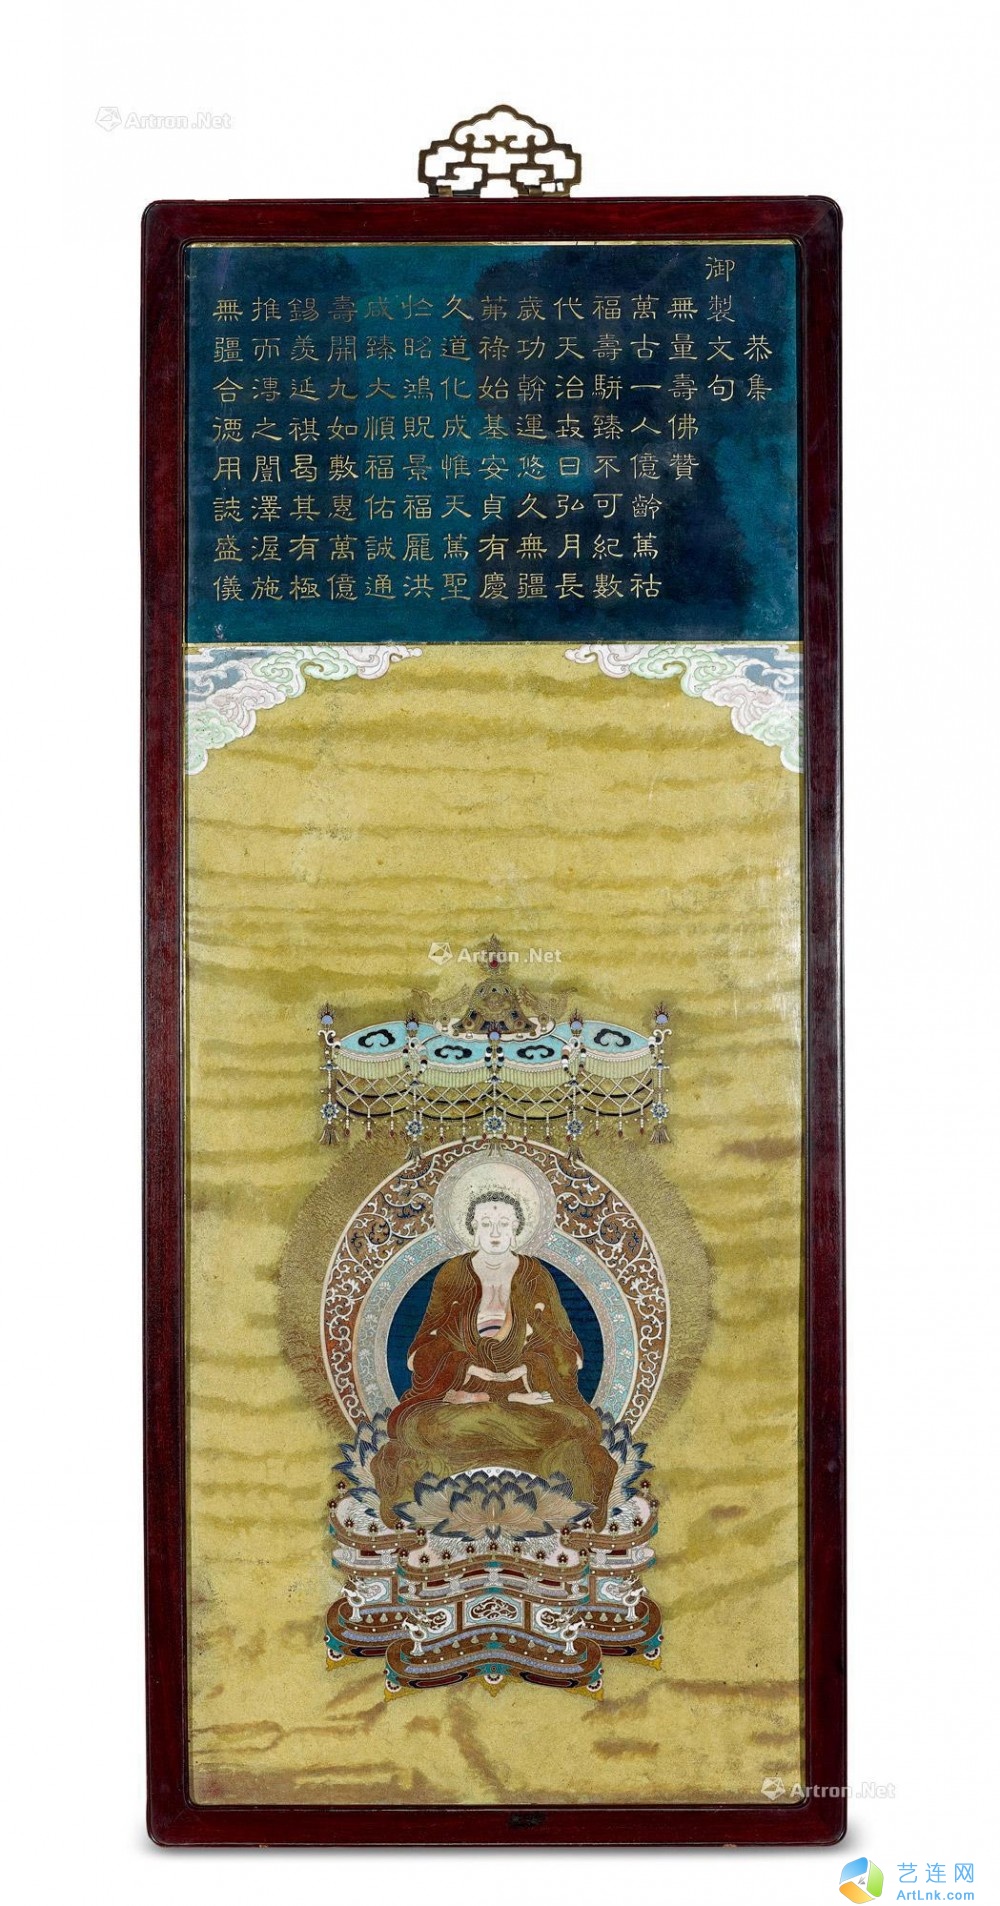 恭集
御製文句
無量壽佛贊
萬古一人億齡篤祜
福壽駢臻不可紀數
代天治日弘月長
歲功斡運悠久無疆
茀祿始基安貞有慶
久道化成惟天篤聖
於昭鴻貺景福龐洪
咸臻大順福佑誠通
壽開九如敷惠萬億
錫羨延祺曷其有極
推而溥之闓澤渥施
無疆合德用誌盛儀
Artron.Net
Artron.Net
Artron.Net
艺连网
ArtLnk.com